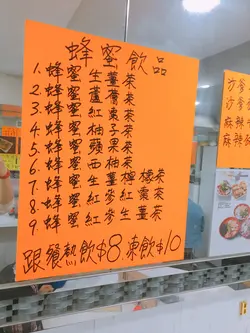 蜂蜜飲品
1. 蜂蜜生薑茶
2. 蜂蜜蘆薈茶
3. 蜂蜜紅棗茶
4. 蜂蜜柚子茶
5. 蜂蜜蘋果茶
6. 蜂蜜西柚茶
7. 蜂蜜生薑檸檬茶
8. 蜂蜜紅參紅棗茶
9. 蜂蜜紅參生薑茶
跟餐熱飲$8.凍飲$10
沙爹
沙爹
麻辣
麻辣